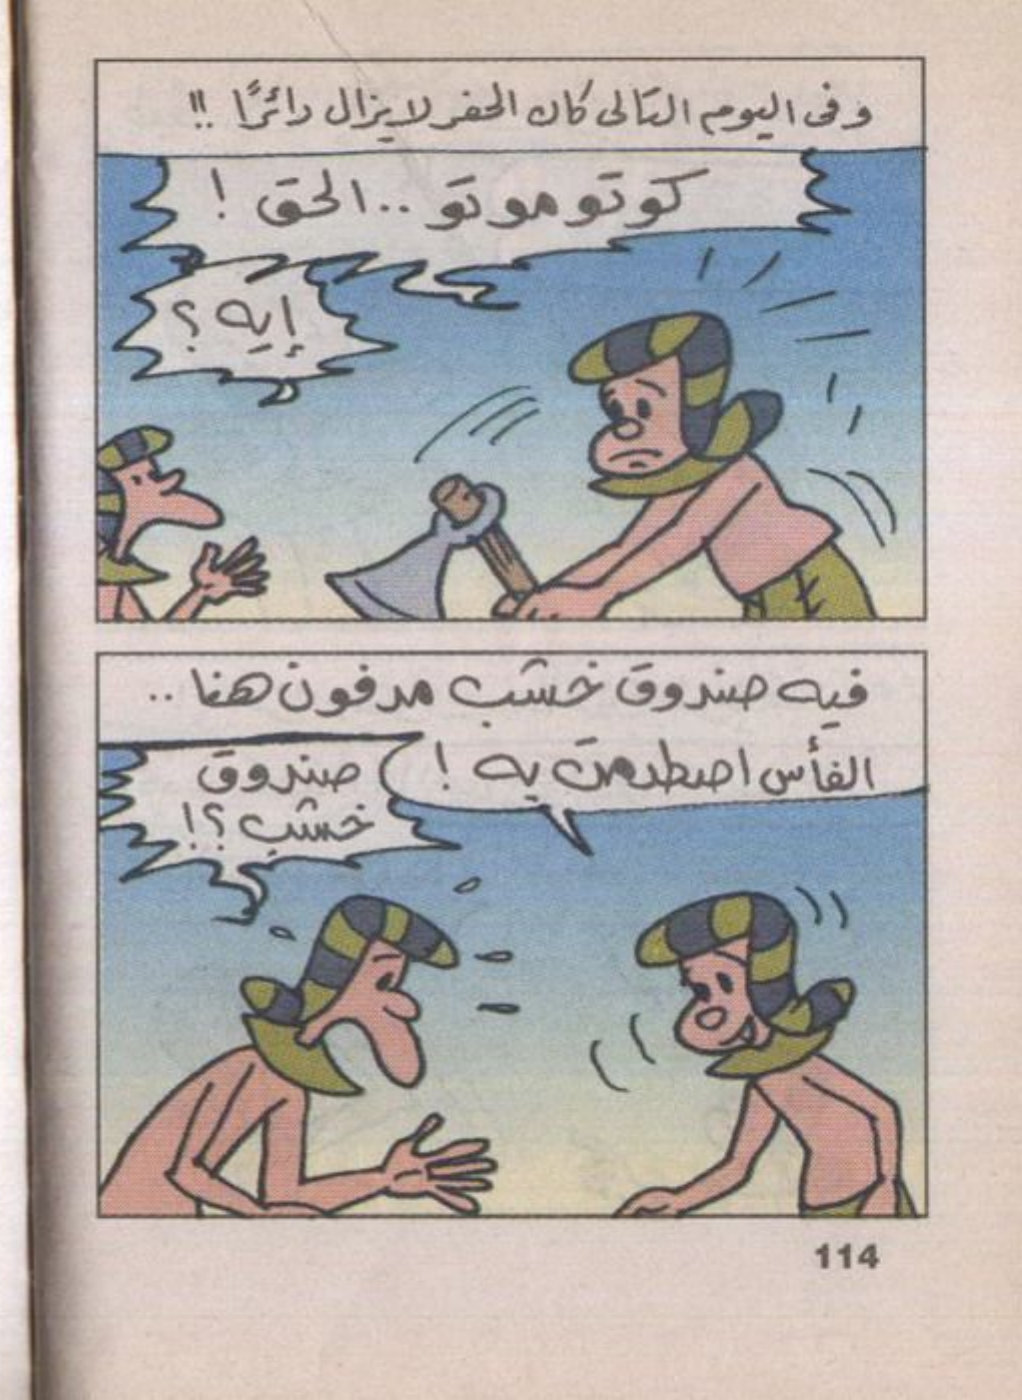 وفى اليوم التالى كان الحفر لايزال دائرًا !!
كوتوموتو .. الحق !
إيه ؟
فيه صندوق خشب مدفون هنا ..
الفأس اصطدمت به !
صندوق
خشب ؟!
114